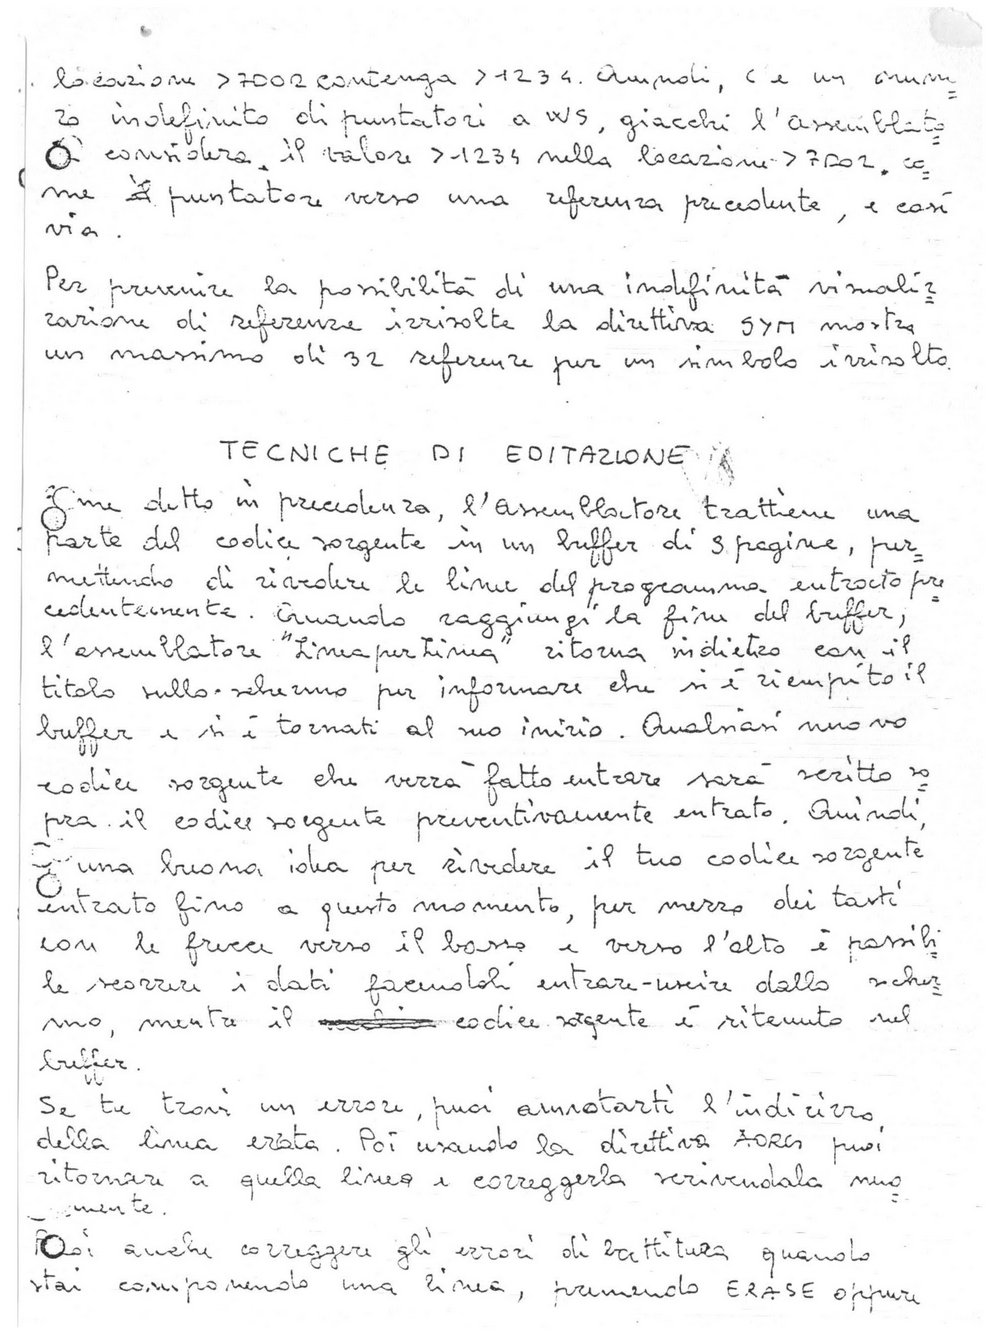 locazione >7D02 contenga >1234. Quindi, c'è un nume=
ro indefinito di puntatori a WS, giacchè l'assemblato=
considera il valore >1234 nella locazione >7D02, co=
me puntatore verso una referenza precedente, e così
via.
Per prevenire la possibilità di una indefinità visualiz=
zazione di referenze irrisolte la direttiva SYM mostra
un massimo di 32 referenze per un simbolo irrisolto.
TECNICHE DI EDITAZIONE
Come detto in precedenza, l'assemblatore trattiene una
parte del codice sorgente in un buffer di 3 pagine, per=
mettendo di rivedere le linee del programma entrato pre=
cedentemente. Quando raggiungi la fine del buffer,
l'assemblatore "Linea per Linea" ritorna indietro con il
titolo sullo schermo per informare che si è riempito il
buffer e si è tornati al suo inizio. Qualsiasi nuovo
codice sorgente che verrà fatto entrare sarà scritto so=
pra il codice sorgente preventivamente entrato. Quindi,
è una buona idea per rivedere il tuo codice sorgente
entrato fino a questo momento, per mezzo dei tasti
con le frecce verso il basso e verso l'alto è possibi=
le scorrere i dati facendoli entrare-uscire dallo scher=
mo, mentre il codice sorgente è ritenuto nel
buffer.
Se tu trovi un errore, puoi annotarti l'indirizzo
della linea errata. Poi usando la direttiva AORG puoi
ritornare a quella linea e correggerla scrivendola nuo=
mente.
Puoi anche correggere gli errori di battitura quando
stai componendo una linea, premendo ERASE oppure